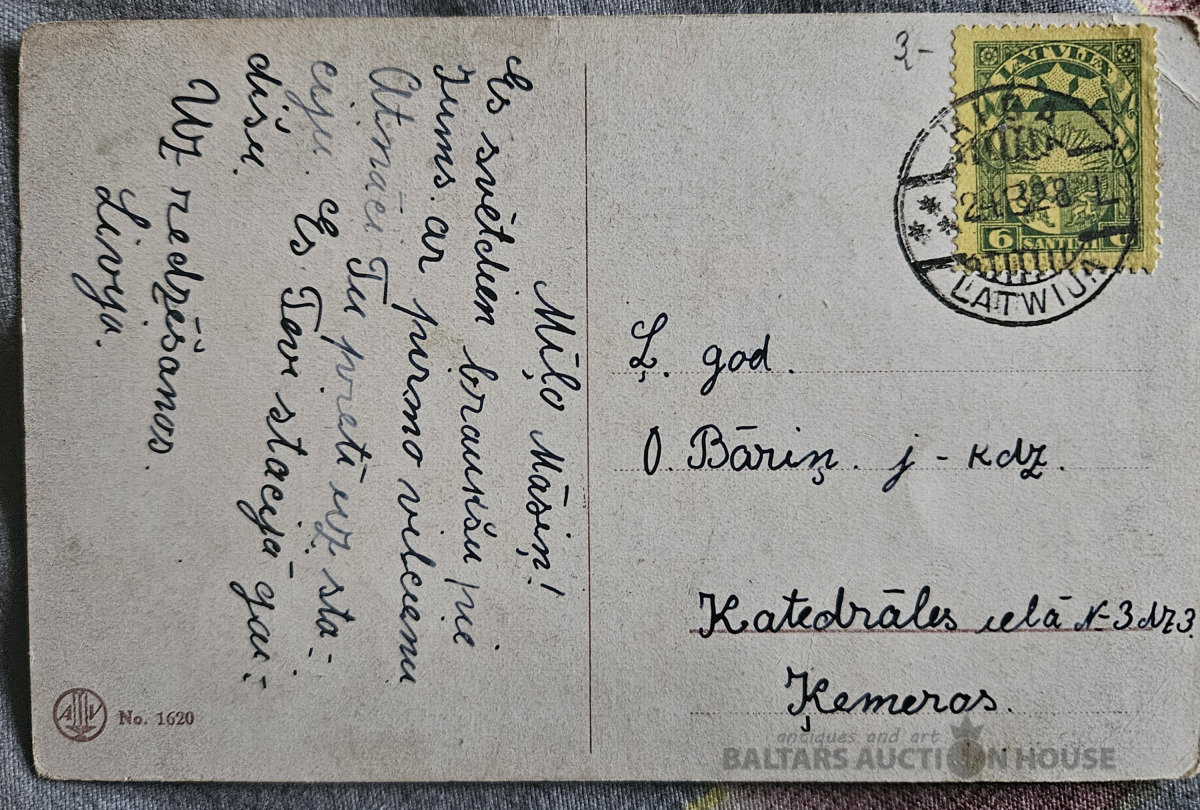 Miļo Māsiņ!
Es svētdien braukšu pie
Jums ar pirmo vilcienu
Atnāci Tu pretī uz sta-
ciju. Es Tevi stacijā gai-
dišu.
Uz redzēšanos.
Livija.
No. 1620
3-
LATVIJA
6 SANTIMI 6
RIGA
LATWIJA
Ļ. god.
O. Bāriņ. j-kdz.
Katedrāles ielā N-3 dz 3
Ķemeros.
antiques and art
BALTARS AUCTION HOUSE